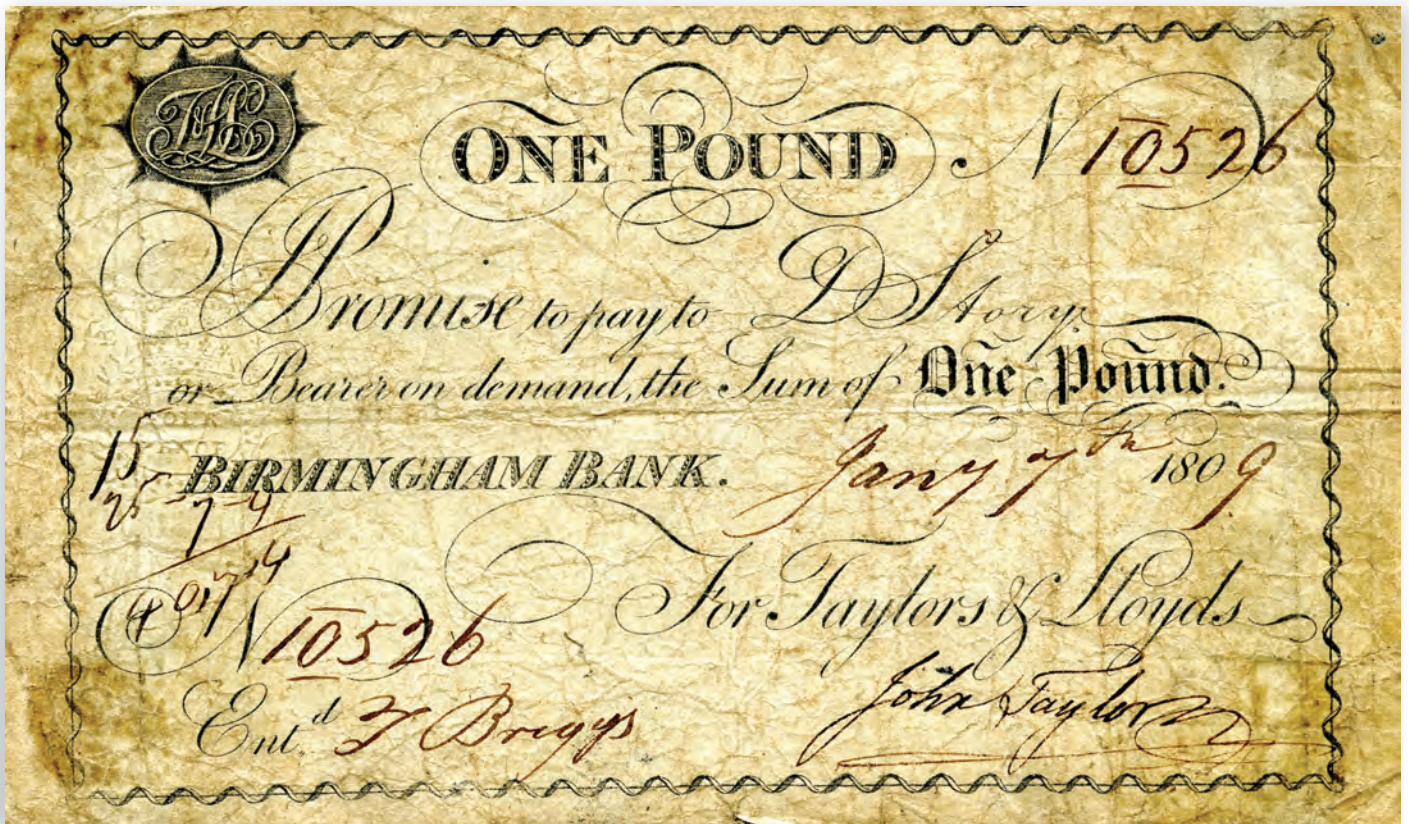 T&L
ONE POUND N 10526
I Promise to pay to D Story
or Bearer on demand, the Sum of One Pound.
15
BIRMINGHAM BANK. Jany 7th 1809
25-7-4
For Taylors & Lloyds
N 10526
John Taylor
Entd. Briggs